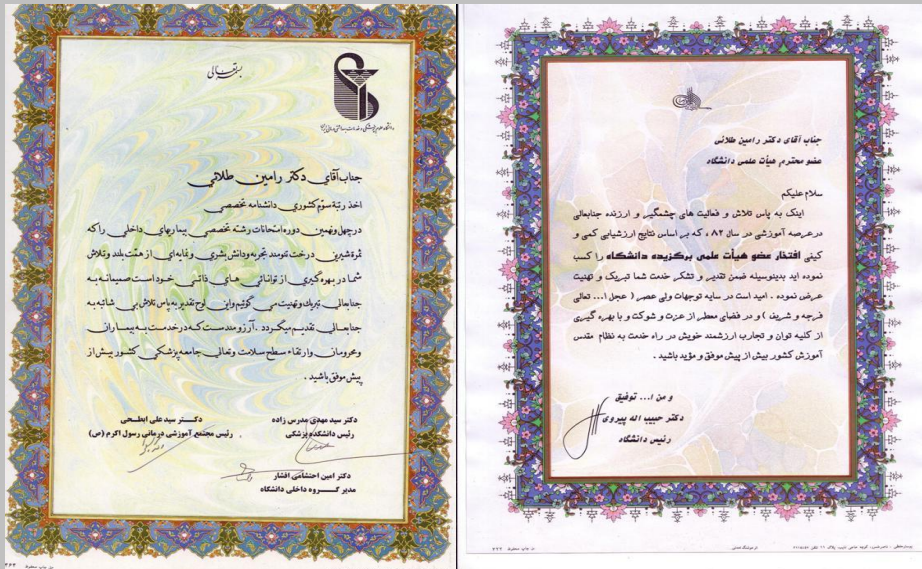 بسمه تعالی
دانشگاه علوم پزشکی و خدمات بهداشتی درمانی ایران
جناب آقای دکتر رامین طلائی
اخذ رتبه سوّم کشوری دانشنامه تخصصی
در چهل و نهمین دوره امتحانات رشته تخصصی بیماریهای داخلی را که
ثمرهٔ شیرین درخت تنومند تجربه و دانش بشری و غایه ای از همت بلند و تلاش
شما در بهره گیری از توانائی های ذاتی خود است صمیمانه به
جنابعالی تبریک و تهنیت می گوئیم و این لوح تقدیر به پاس تلاش بی شائبه به
جنابعالی تقدیم میگردد. آرزومند است که در خدمت به بیماران
و محرومان و ارتقاء سطح سلامت و تعالی جامعه پزشکی کشور بیش از
پیش موفق باشید.
دکتر سید مهدی مدرس زاده
رئیس دانشکده پزشکی
دکتر سید علی ابطحی
رئیس مجتمع آموزشی درمانی رسول اکرم (ص)
دکتر امین احتشامی افشار
مدیر گروه داخلی دانشگاه
جناب آقای دکتر رامین طلائی
عضو محترم هیأت علمی دانشگاه
سلام علیکم
اینک به پاس تلاش و فعالیت های چشمگیر و ارزنده جنابعالی
در عرصه آموزشی در سال ۸۲، که بر اساس نتایج ارزشیابی کمی و
کیفی افتخار عضو هیأت علمی برگزیده دانشگاه را کسب
نموده اید بدینوسیله ضمن تقدیر و تشکر خدمت شما تبریک و تهنیت
عرض نموده. امید است در سایه توجهات ولی عصر (عجل ا... تعالی
فرجه و شریف) و در فضای معطر از عزت و شوکت و با بهره گیری
از کلیه توان و تجارب ارزشمند خویش در راه خدمت به نظام مقدس
آموزش کشور بیش از پیش موفق و مؤید باشید.
و من ا... توفیق
دکتر حبیب اله پیروی
رئیس دانشگاه